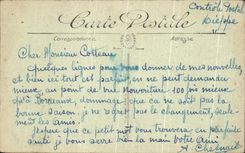 Contrôle Postal
Dieppe
Carte Postale
Correspondance
Adresse
Cher Monsieur Cotteau
Quelques lignes pour vous donner de mes nouvelles
et bien ici tout est parfait, on ne peut demander
mieux, au point de vue nourriture 100 fois mieux
qu'à Bordeaux, dommage que ce ne soit pas la
bonne saison, je ne regrette pas le changement, seule-
ment les amis.
J'espère que ce petit mot vous trouvera en parfaite
santé, je vous serre bien la main votre Ami
A.